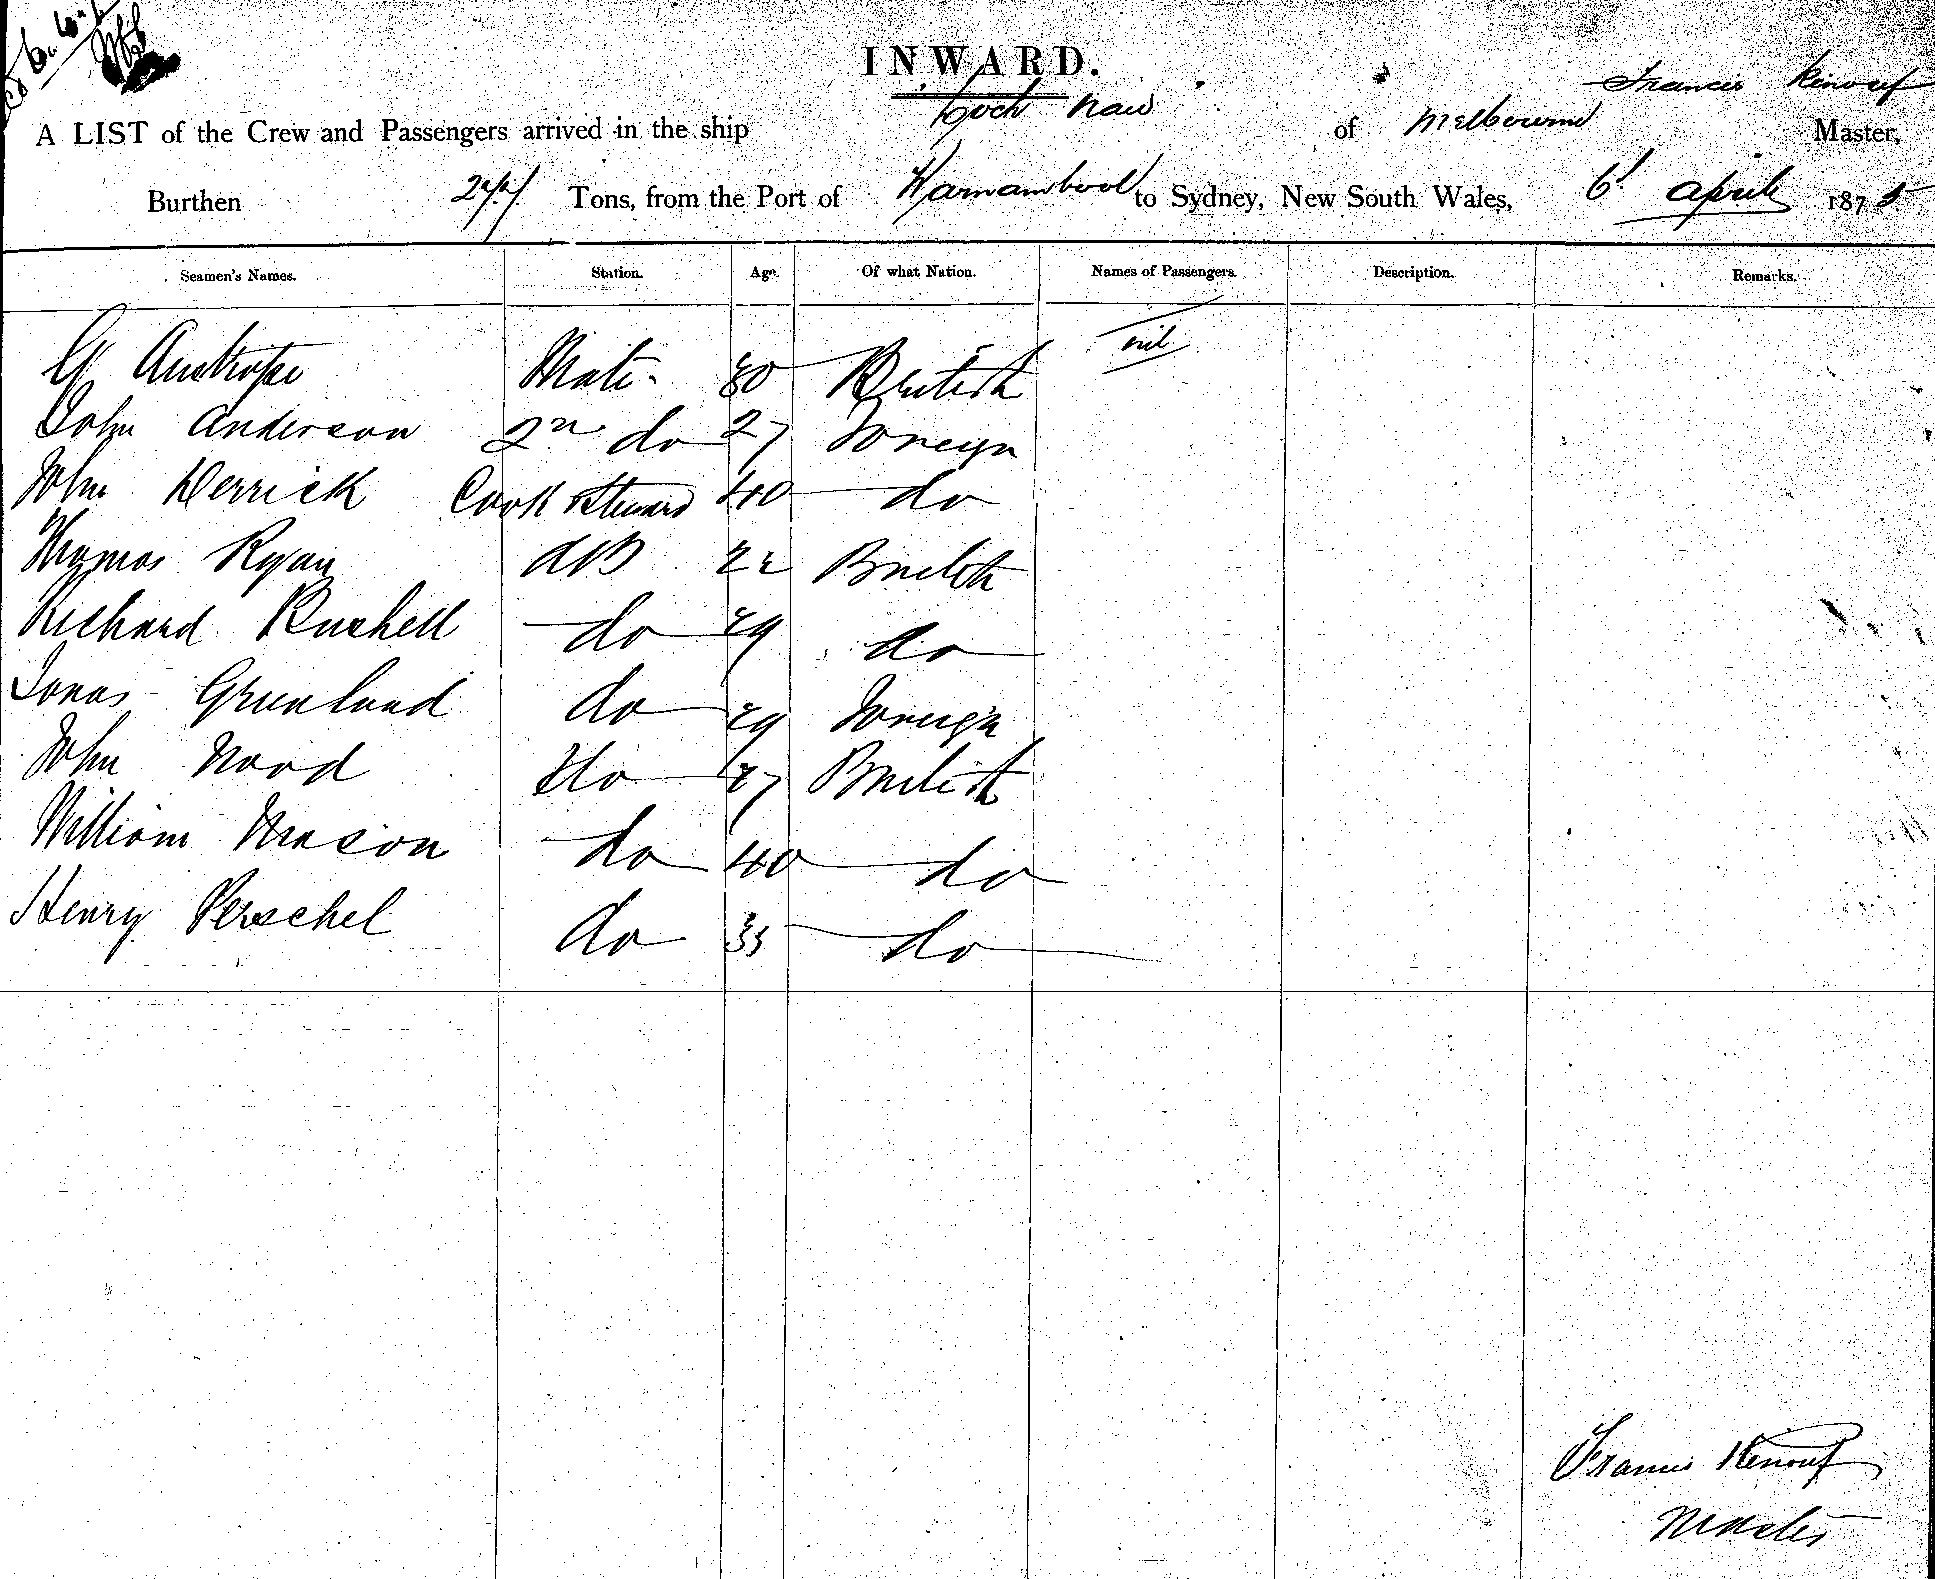 INWARD.
Francis Renouf
A LIST of the Crew and Passengers arrived in the ship Loch Naw of Melbourne Master,
Burthen Tons, from the Port of Warnambool to Sydney, New South Wales, 6 April 1875
Seamen's Names. Station. Age. Of what Nation. Names of Passengers. Description. Remarks.
Mate 30 British nil
John Anderson 2n do 27 Foreign
John Derrick Cook & Steward 40 do
Thomas Ryan AB 22 British
Richard Bushell do 29 do
Jonas Greenlund do 29 Foreign
John Wood do 27 British
William Mason do 40 do
Henry Perschel do 35 do
Francis Renouf
Master